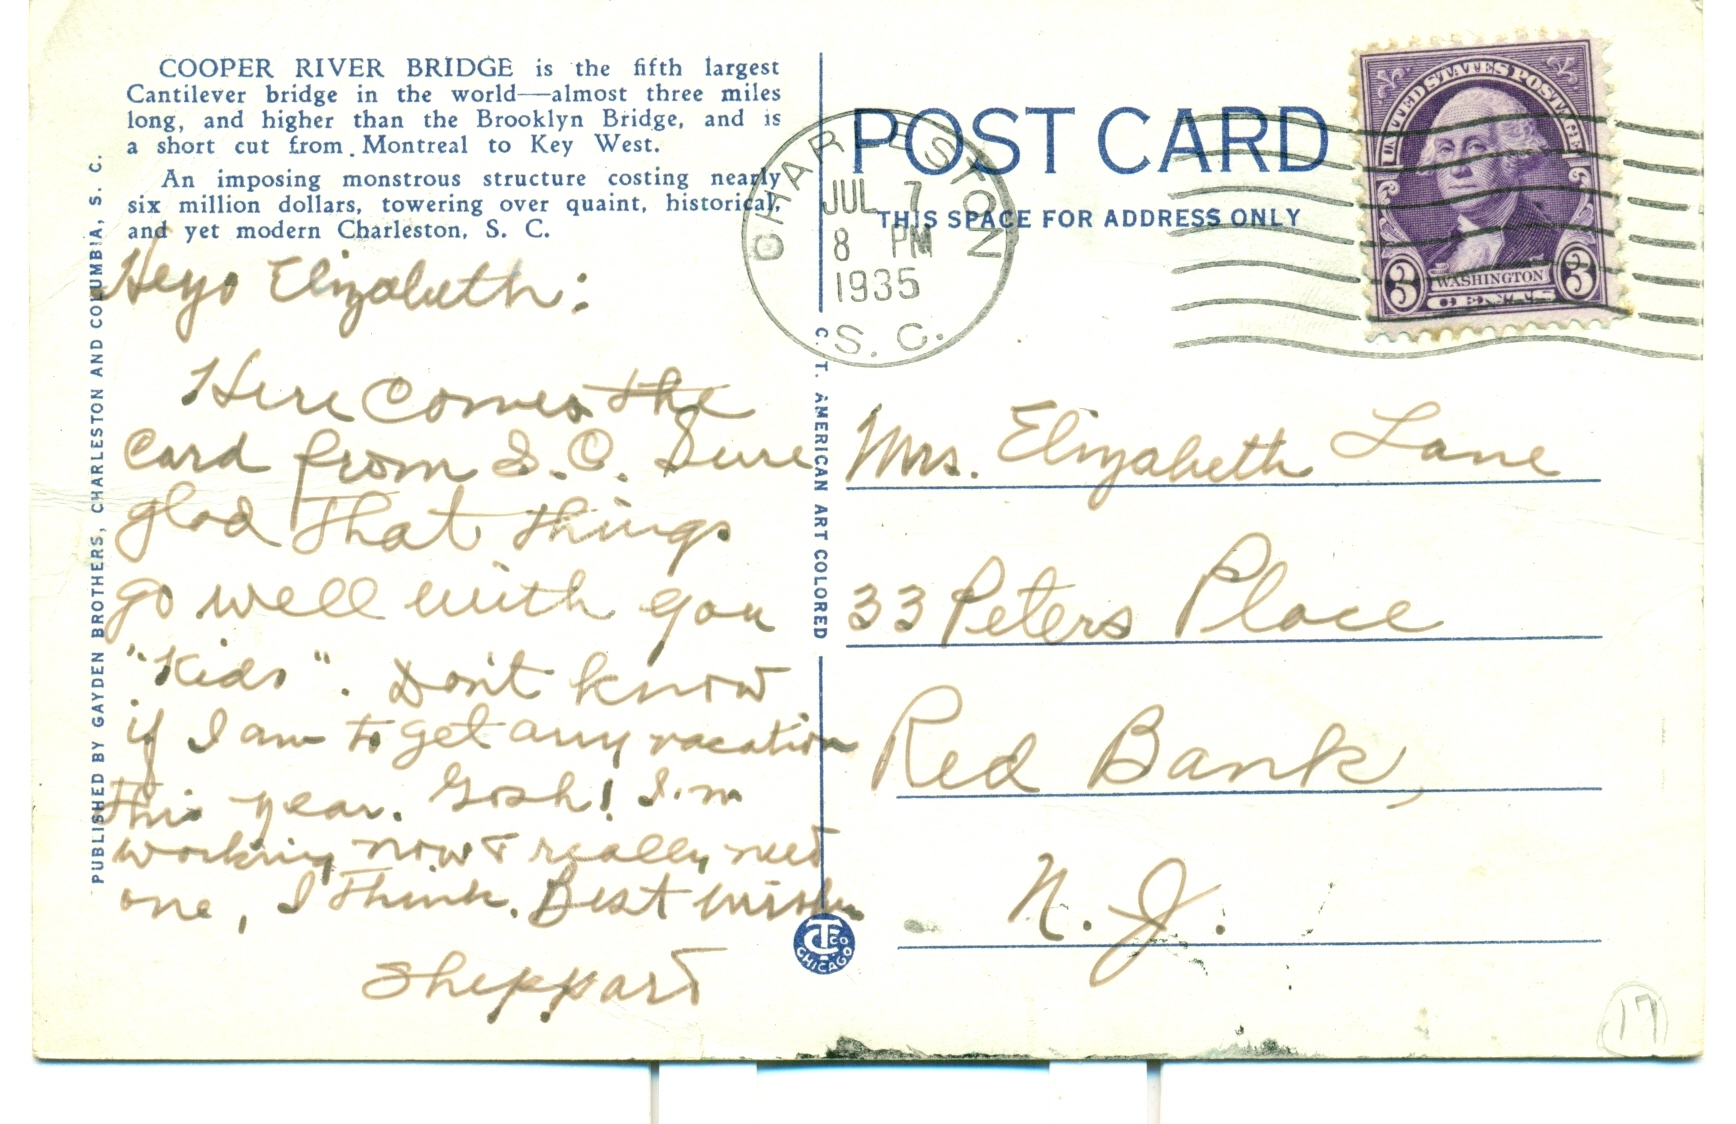 COOPER RIVER BRIDGE is the fifth largest
Cantilever bridge in the world—almost three miles
long, and higher than the Brooklyn Bridge, and is
a short cut from Montreal to Key West.
An imposing monstrous structure costing nearly
six million dollars, towering over quaint, historical,
and yet modern Charleston, S. C.
Heyo Elizabeth:
Here comes the
card from S.C. Sure
glad that things
go well with you
"Kids". Don't know
if I am to get any vacation
this year. Gosh! I'm
working now & really need
one, I think. Best wishes
Sheppard
PUBLISHED BY GAYDEN BROTHERS, CHARLESTON AND COLUMBIA, S. C.
C. T. AMERICAN ART COLORED
CT CO
CHICAGO
POST CARD
THIS SPACE FOR ADDRESS ONLY
CHARLESTON
JUL 7
8 PM
1935
S. C.
UNITED STATES POSTAGE
WASHINGTON
3 CENTS 3
Mrs. Elizabeth Lane
33 Peters Place
Red Bank,
N. J.
17